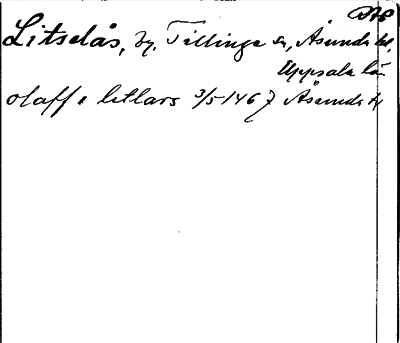 Litslås, by, Tillinge sn, Åsunda hd,
Uppsala län
olaff e litlars 3/5 1467 Åsunda